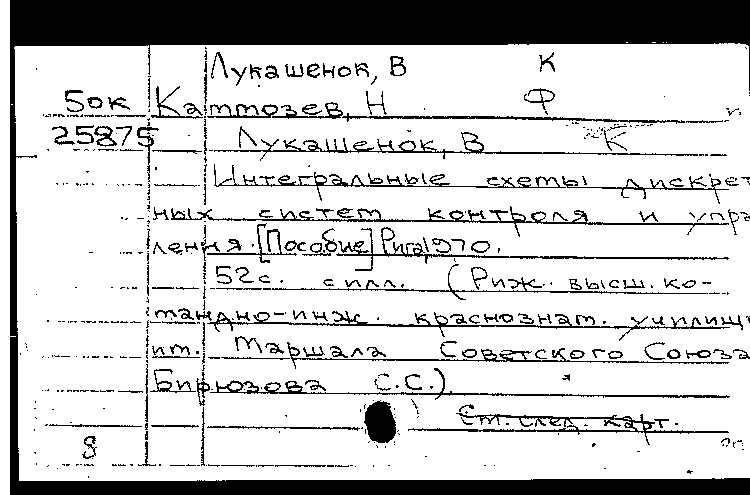 Лукашенок, В К
50к Каттозев, Н Ф
25875 Лукашенок, В К
Интегральные схемы дискрет
ных систем контроля и упра
ления. [Пособие] Рига, 1970.
52с. с илл. (Риж. высш. ко-
тандно-инж. краснознат. училищ
ит. Маршала Советского Союза
Бирюзова С.С.)
Ст. след. карт.
8